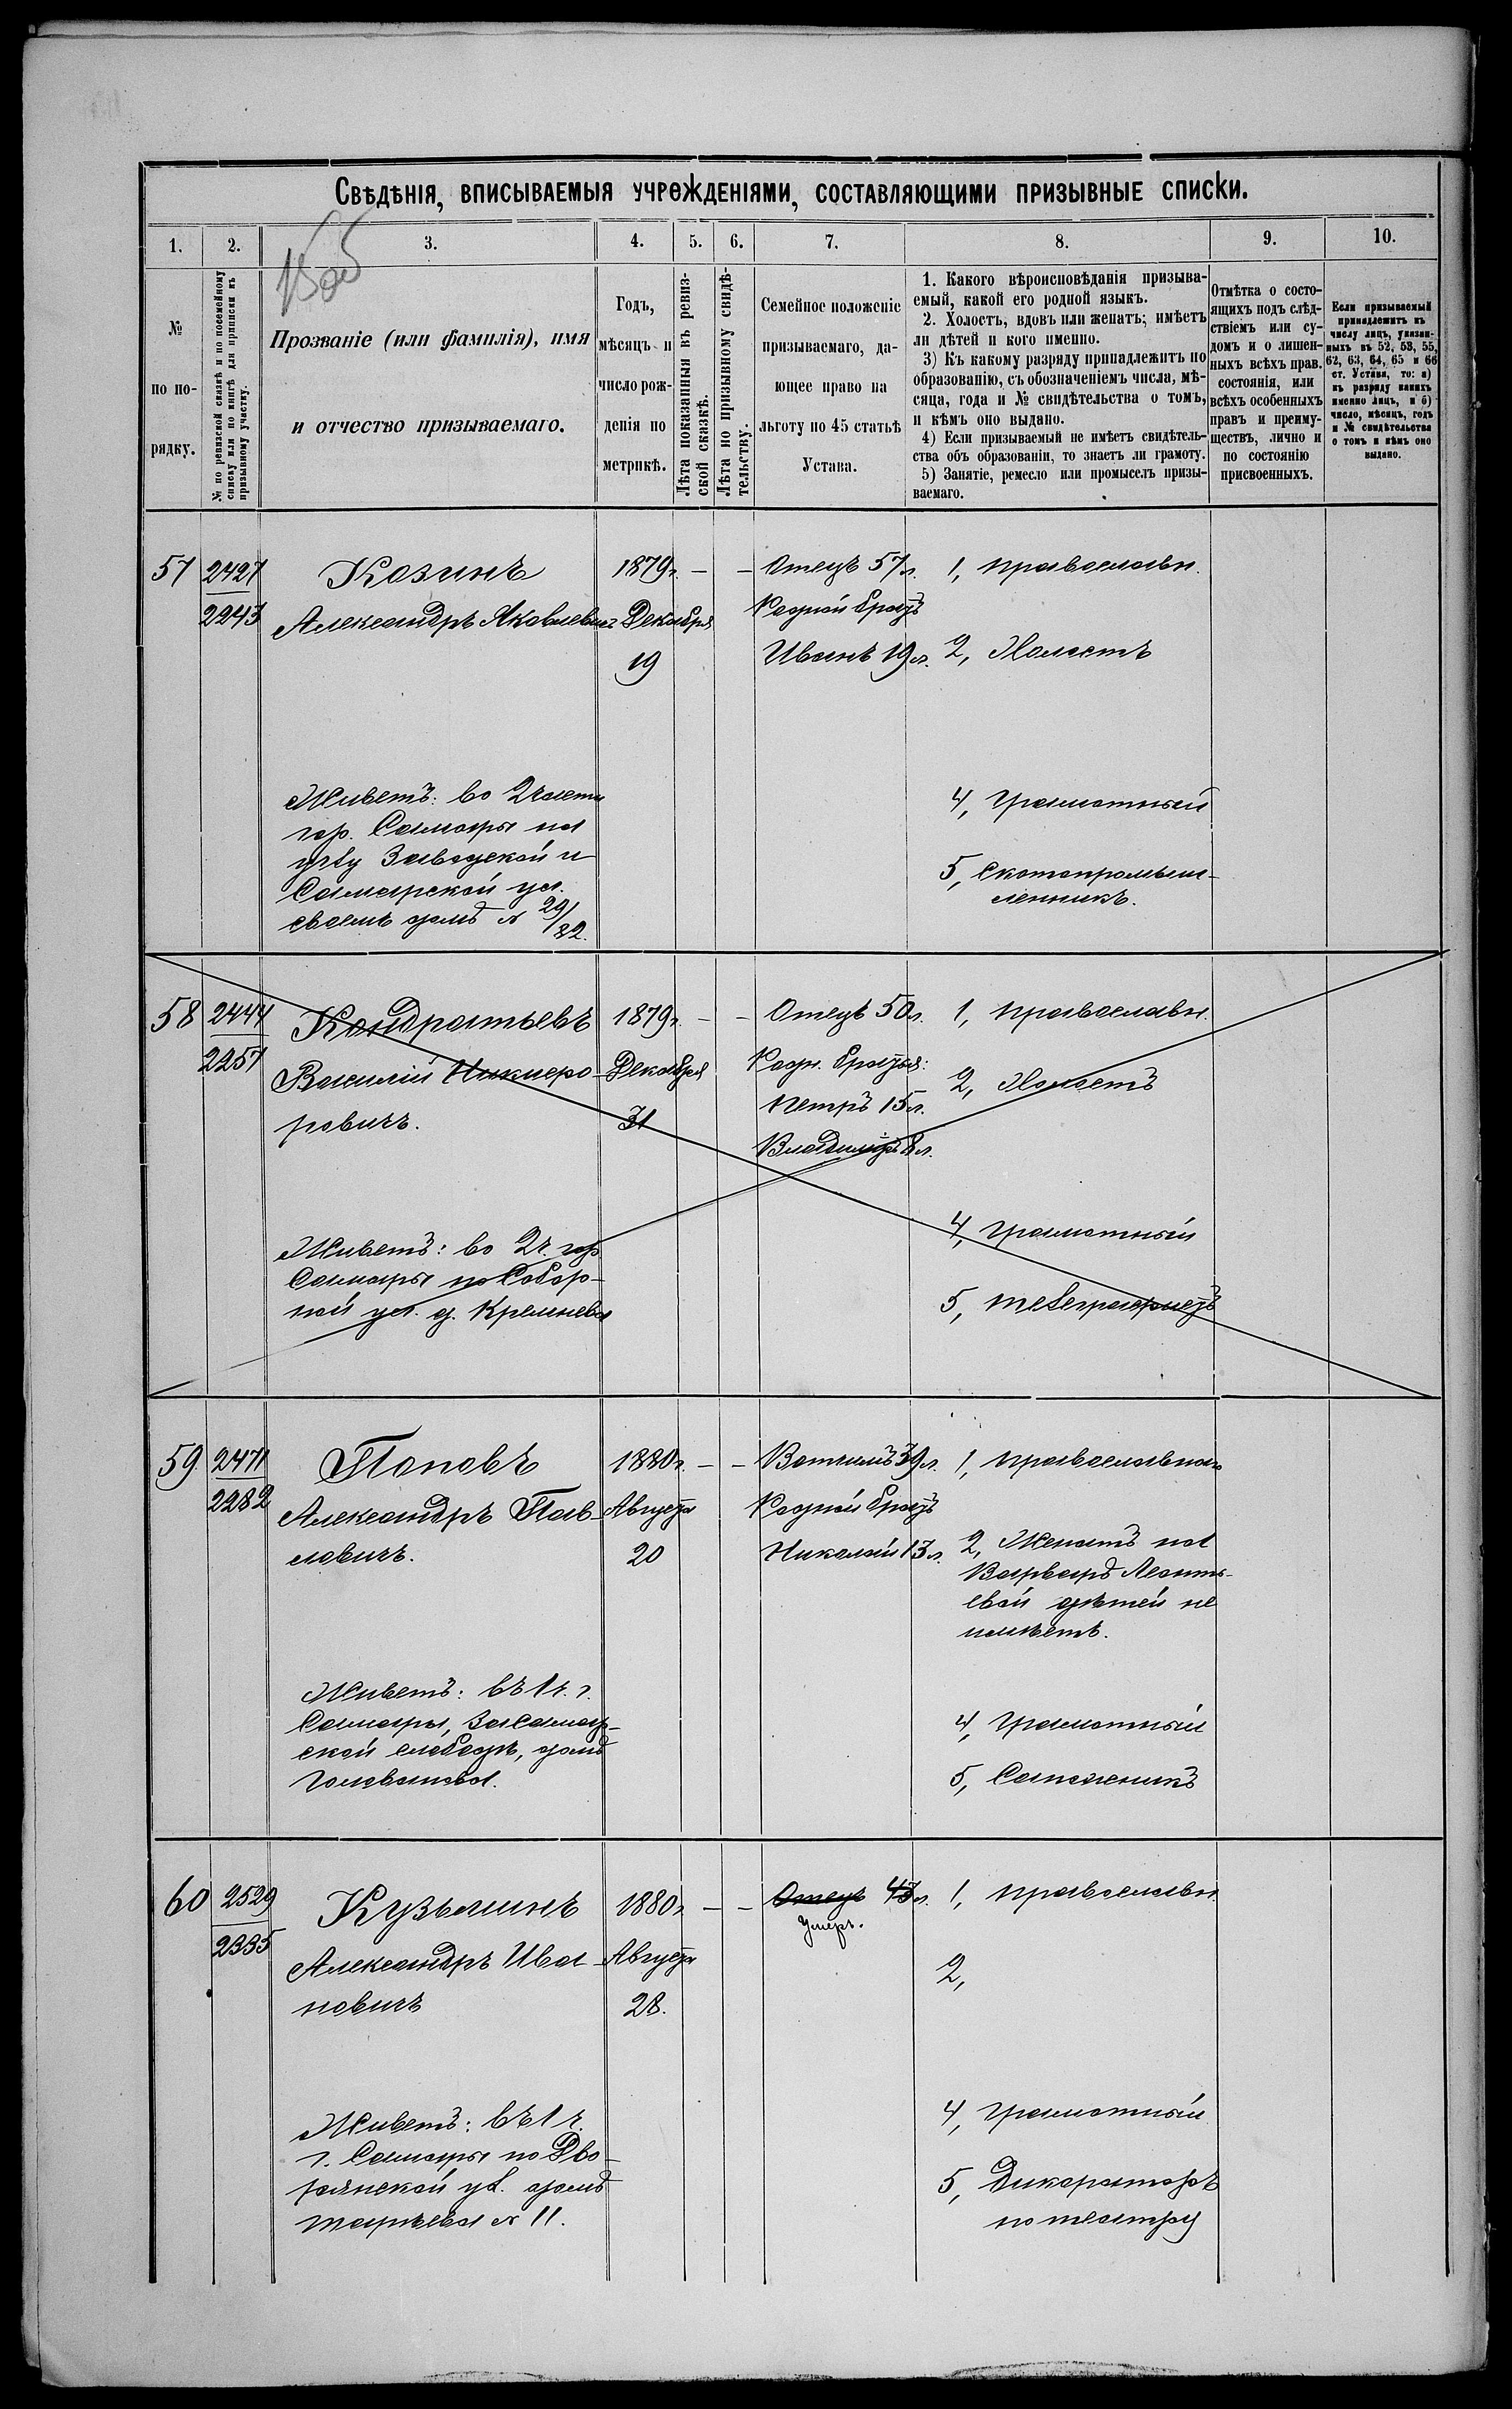 Свѣдѣнія, вписываемыя учрежденіями, составляющими призывные списки.
1. 2. 3. 4. 5. 6. 7. 8. 9. 10.
№
по по-
рядку.
№ по ревизской сказкѣ и по посемейному
списку или по книгѣ для приписки къ
призывному участку.
Прозваніе (или фамилія), имя
и отчество призываемаго.
Годъ,
мѣсяцъ и
число рож-
денія по
метрикѣ.
Лѣта показанныя въ ревиз-
ской сказкѣ.
Лѣта по призывному свидѣ-
тельству.
Семейное положеніе
призываемаго, да-
ющее право на
льготу по 45 статьѣ
Устава.
1. Какого вѣроисповѣданія призыва-
емый, какой его родной языкъ.
2. Холостъ, вдовъ или женатъ; имѣетъ
ли дѣтей и кого именно.
3) Къ какому разряду принадлежитъ по
образованію, съ обозначеніемъ числа, мѣ-
сяца, года и № свидѣтельства о томъ,
и кѣмъ оно выдано.
4) Если призываемый не имѣетъ свидѣтель-
ства объ образованіи, то знаетъ ли грамоту.
5) Занятіе, ремесло или промыселъ призы-
ваемаго.
Отмѣтка о состо-
ящихъ подъ слѣд-
ствіемъ или су-
домъ и о лишен-
ныхъ всѣхъ прав.
состоянія, или
всѣхъ особенныхъ
правъ и преиму-
ществъ, лично и
по состоянію
присвоенныхъ.
Если призываемый
принадлежитъ къ
числу лицъ, указан-
ныхъ въ 52, 53, 55,
62, 63, 64, 65 и 66
ст. Устава, то: а)
къ разряду какихъ
именно лицъ, и б)
число, мѣсяцъ, годъ
и № свидѣтельства
о томъ и кѣмъ оно
выдано.
57 2427
2243
Козинъ
Александръ Яковлевичъ
1879 г.
Декабря
19
— —
Отецъ 57 л.
Родной братъ
Иванъ 19 л.
1, православн.
2, Холостъ
4, грамотный
5, скотопромыш-
ленникъ.
Живетъ: во 2 части
гор. Самары на
углу Заводской и
Самарской ул.
своемъ домѣ № 29/82.
58 2444
2257
Кондратьевъ
Василій Никиеро-
ровичъ.
1879 г.
Декабря
31
— —
Отецъ 50 л.
Родн. братья:
Петръ 15 л.
Владиміръ 8 л.
1, православн.
2, Холостъ
4, грамотный
5, телеграфистъ
Живетъ: во 2 ч. гор.
Самары по Собор-
ной ул. д. Кремнева
59 2471
2282
Поповъ
Александръ Пав-
ловичъ.
1880 г.
Августа
20
— —
Вотчимъ 39 л.
Родной братъ
Николай 13 л.
1, православнаго
2, Женатъ на
Варварѣ Леонть-
евой дѣтей не
имѣетъ.
4, грамотный
5, Сапожникъ
Живетъ: въ 1 ч. г.
Самары, Засамар-
ской слободѣ, домѣ
Голованова.
60 2529
2335
Кузьминъ
Александръ Ива-
новичъ
1880 г.
Августа
28.
— —
Отецъ 43 л.
умеръ.
1, православн.
2,
4, грамотный
5, Дикораторъ
по театру
Живетъ: въ 1 ч.
г. Самары по Дво-
рянской ул. домѣ
№ 11.